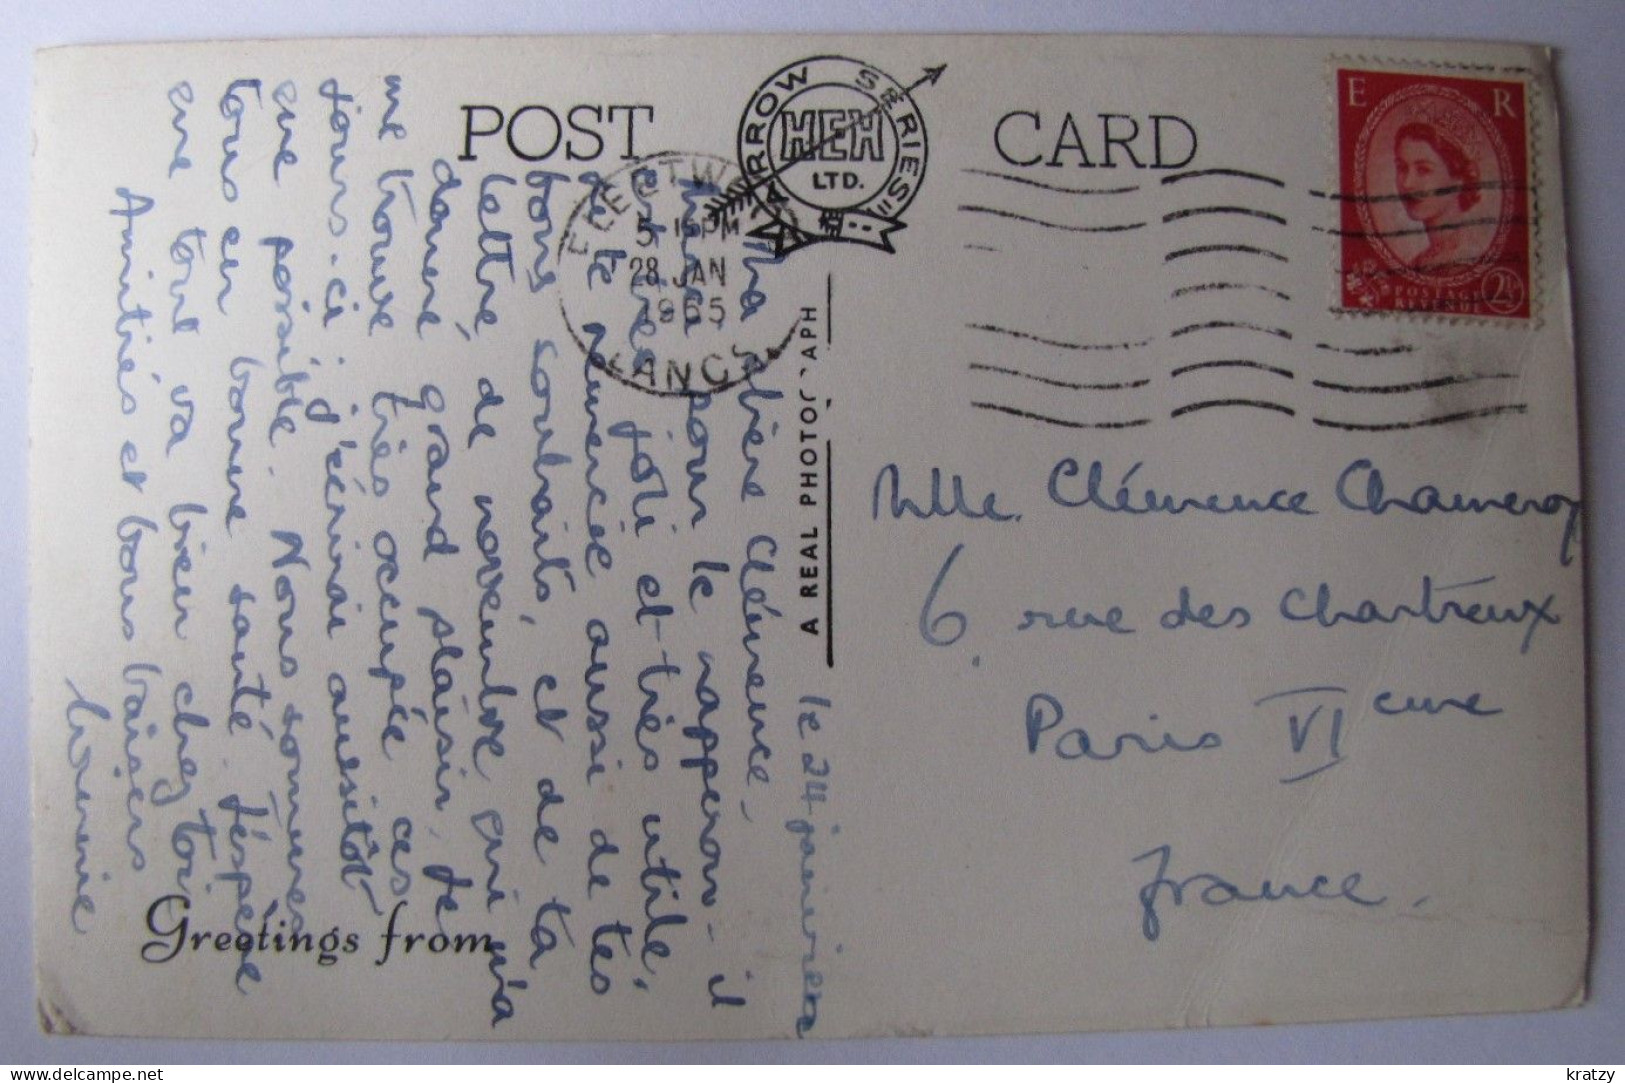 POST CARD
ARROW SERIES
HEH
LTD.
FLEETWOOD
5 15 PM
28 JAN
1965
LANCS.
E R
POSTAGE
REVENUE
2½
A REAL PHOTOGRAPH
Greetings from
le 24 janvier
Ma chère Clémence,
Merci pour le napperon - il
est très joli et très utile.
Je te remercie aussi de tes
bons souhaits, et de ta
lettre de novembre qui m'a
donné grand plaisir. Je
me trouve très occupée ces
jours-ci; j'écrirai aussitôt
que possible. Nous sommes
tous en bonne santé. J'espère
que tout va bien chez toi.
Amitiés et bons baisers
Mlle. Clémence Chameroy
6, rue des Chartreux
Paris VI ème
France.
kratzy